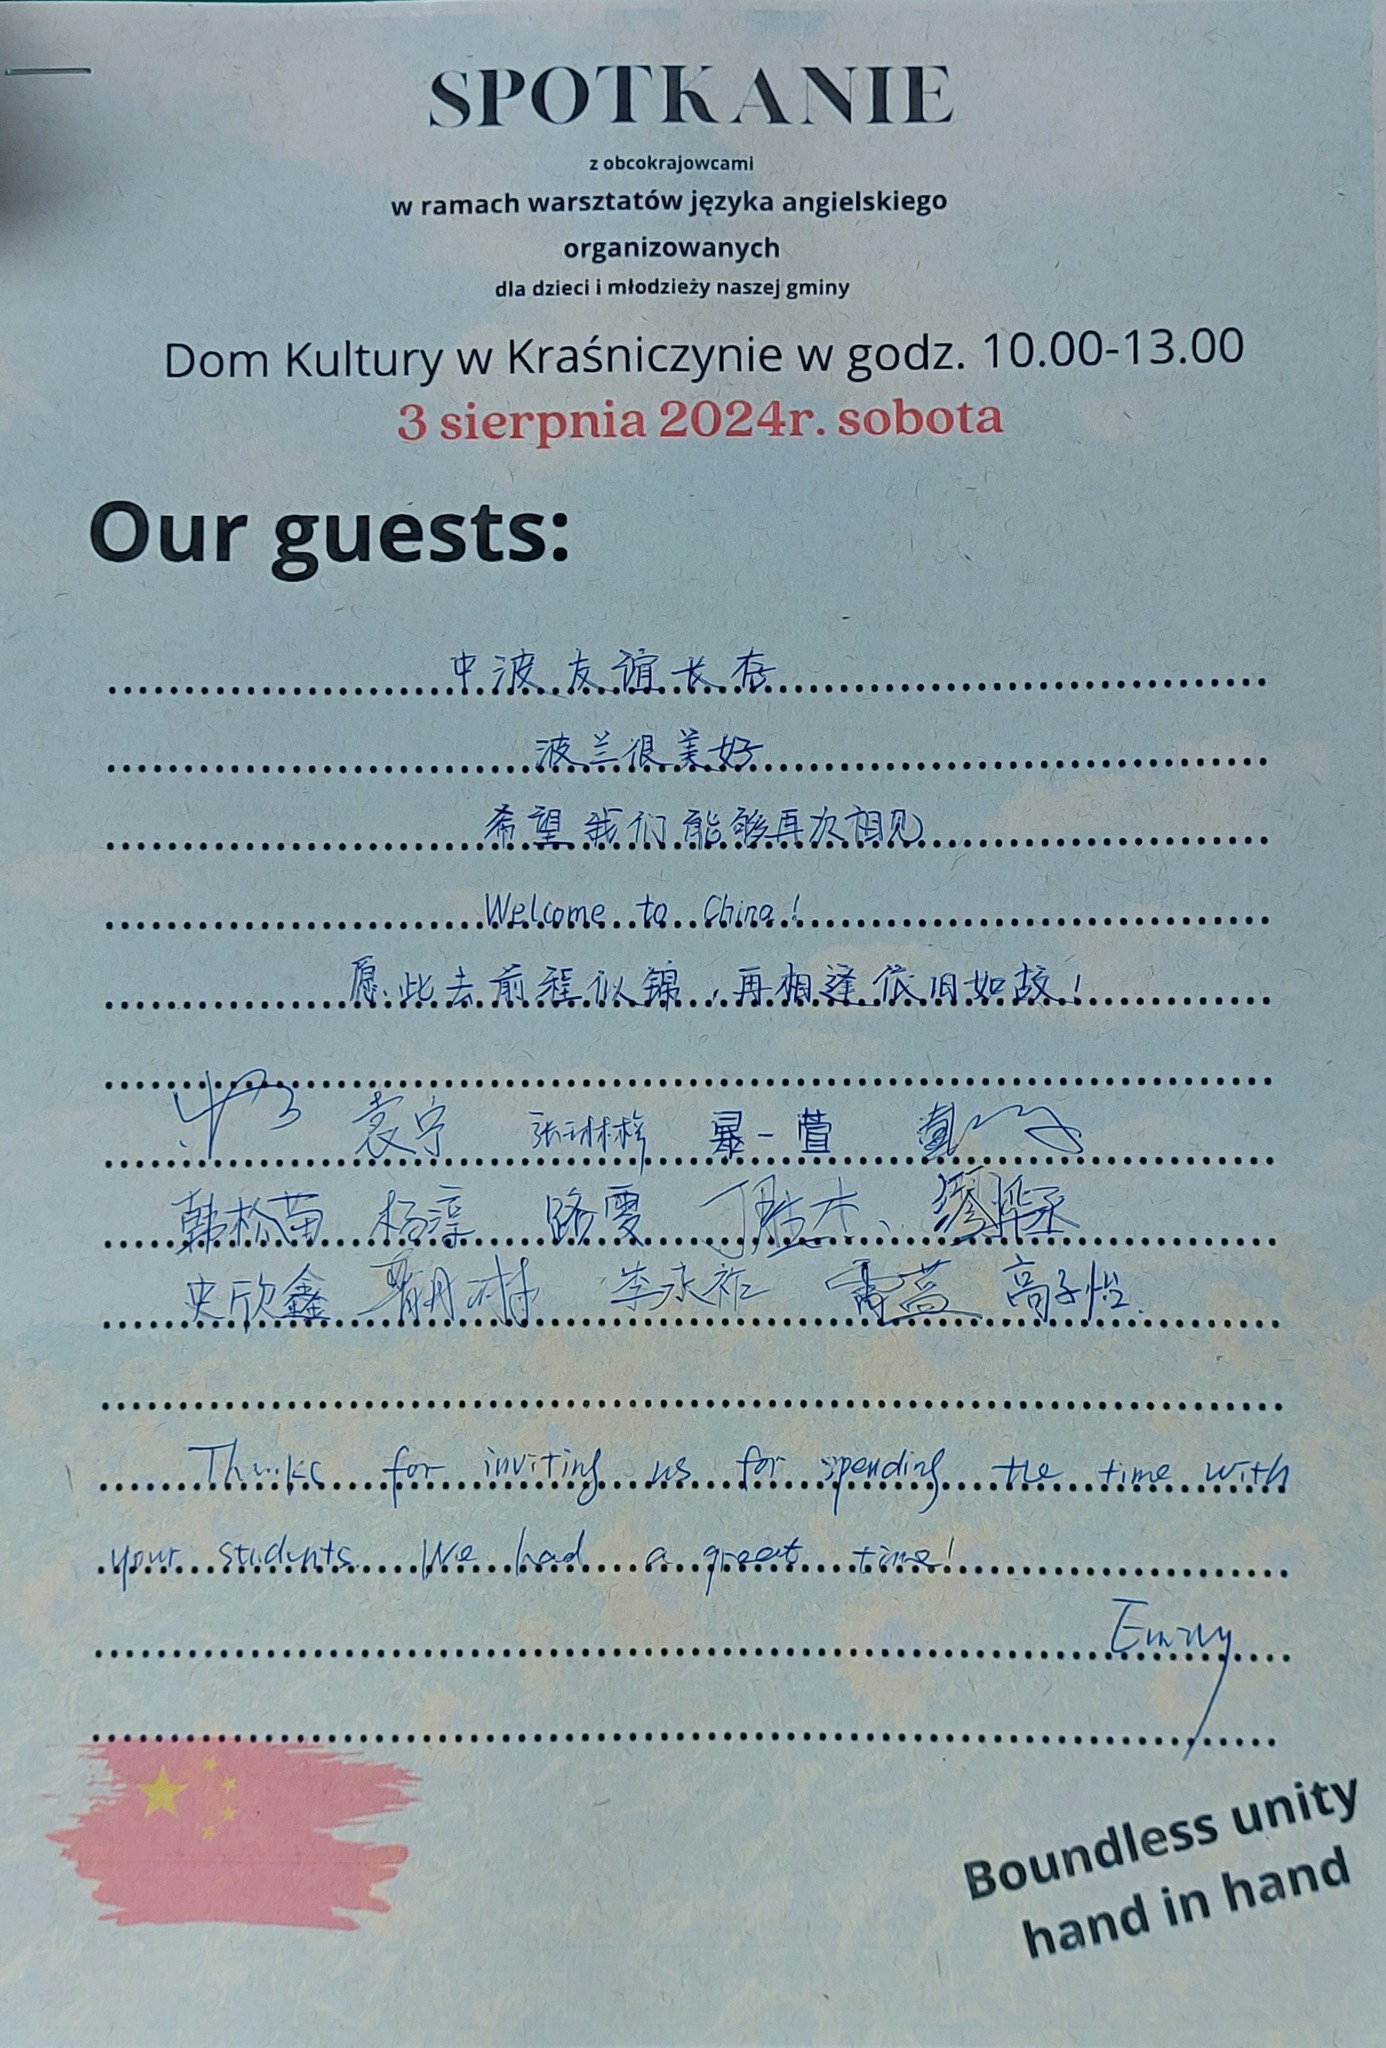 SPOTKANIE
z obcokrajowcami
w ramach warsztatów języka angielskiego
organizowanych
dla dzieci i młodzieży naszej gminy
Dom Kultury w Kraśniczynie w godz. 10.00-13.00
3 sierpnia 2024r. sobota
Our guests:
中波友谊长存
波兰很美好
希望我们能够再次相见
Welcome to China!
愿此去前程似锦，再相逢依旧如故！
袁宁
韩松苗 杨淳 路雯
史欣鑫 李永祚 雷蕊 高子怡
Thanks for inviting us for spending the time with
your students. We had a great time!
Boundless unity
hand in hand